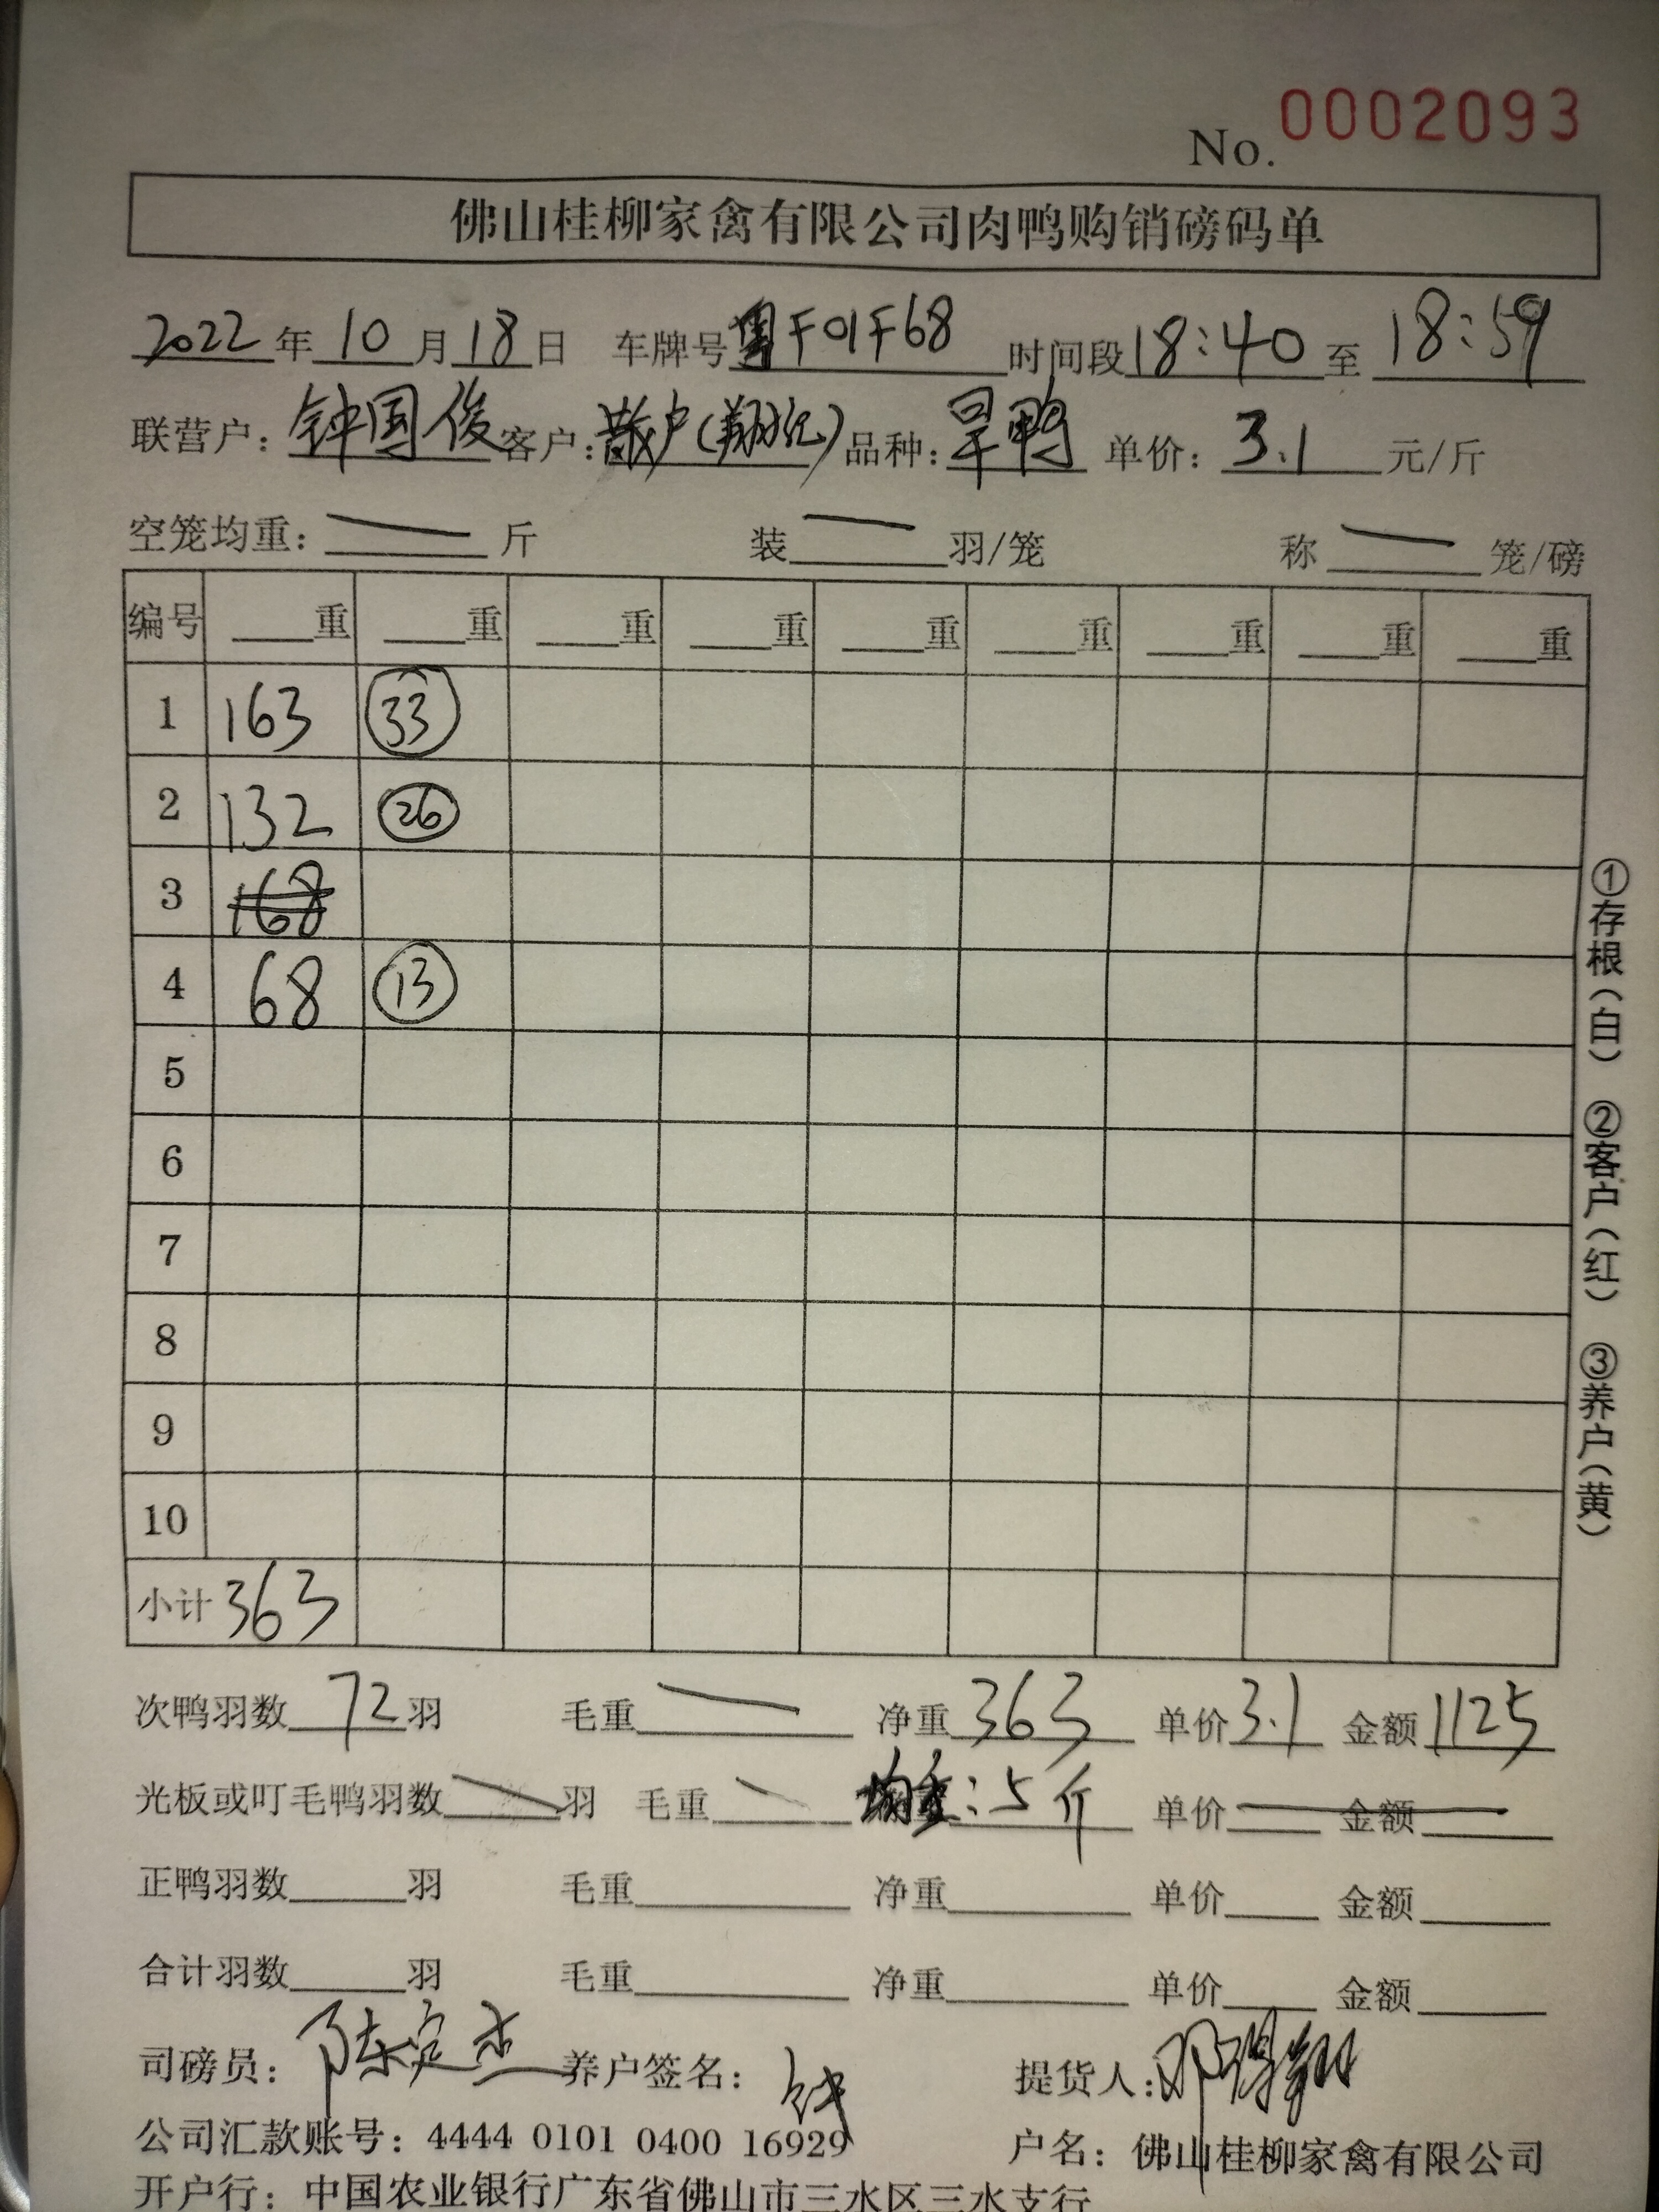 No. 0002093
佛山桂柳家禽有限公司肉鸭购销磅码单
2022年10月18日 车牌号粤F01F68 时间段18:40至18:59
联营户:钟国俊 客户:散户(翔记) 品种:旱鸭 单价:3.1元/斤
空笼均重:—斤 装—羽/笼 称—笼/磅
编号 重 重 重 重 重 重 重 重 重
1 163 33
2 132 26
3 168
4 68 13
5
6
7
8
9
10
小计 363
次鸭羽数72羽 毛重— 净重363 单价3.1 金额1125
光板或叮毛鸭羽数—羽 毛重— 均重:5斤 单价— 金额—
正鸭羽数 羽 毛重 净重 单价 金额
合计羽数 羽 毛重 净重 单价 金额
司磅员:陈定杰 养户签名: 提货人:
公司汇款账号:4444 0101 0400 16929 户名:佛山桂柳家禽有限公司
开户行:中国农业银行广东省佛山市三水区三水支行
①存根(白) ②客户(红) ③养户(黄)